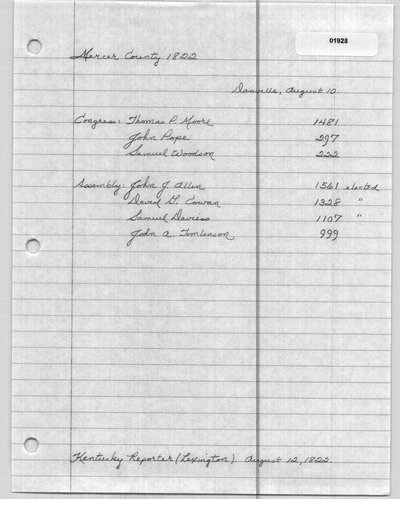 01923
Mercer County 1822
Danville, August 10.
Congress: Thomas P. Moore 1481
John Pope 297
Samuel Woodson 222
Assembly: John J. Allin 1561 elected
David G. Cowan 1328 "
Samuel Daviess 1107 "
John A. Tomlinson 999
Kentucky Reporter (Lexington). August 12, 1822.